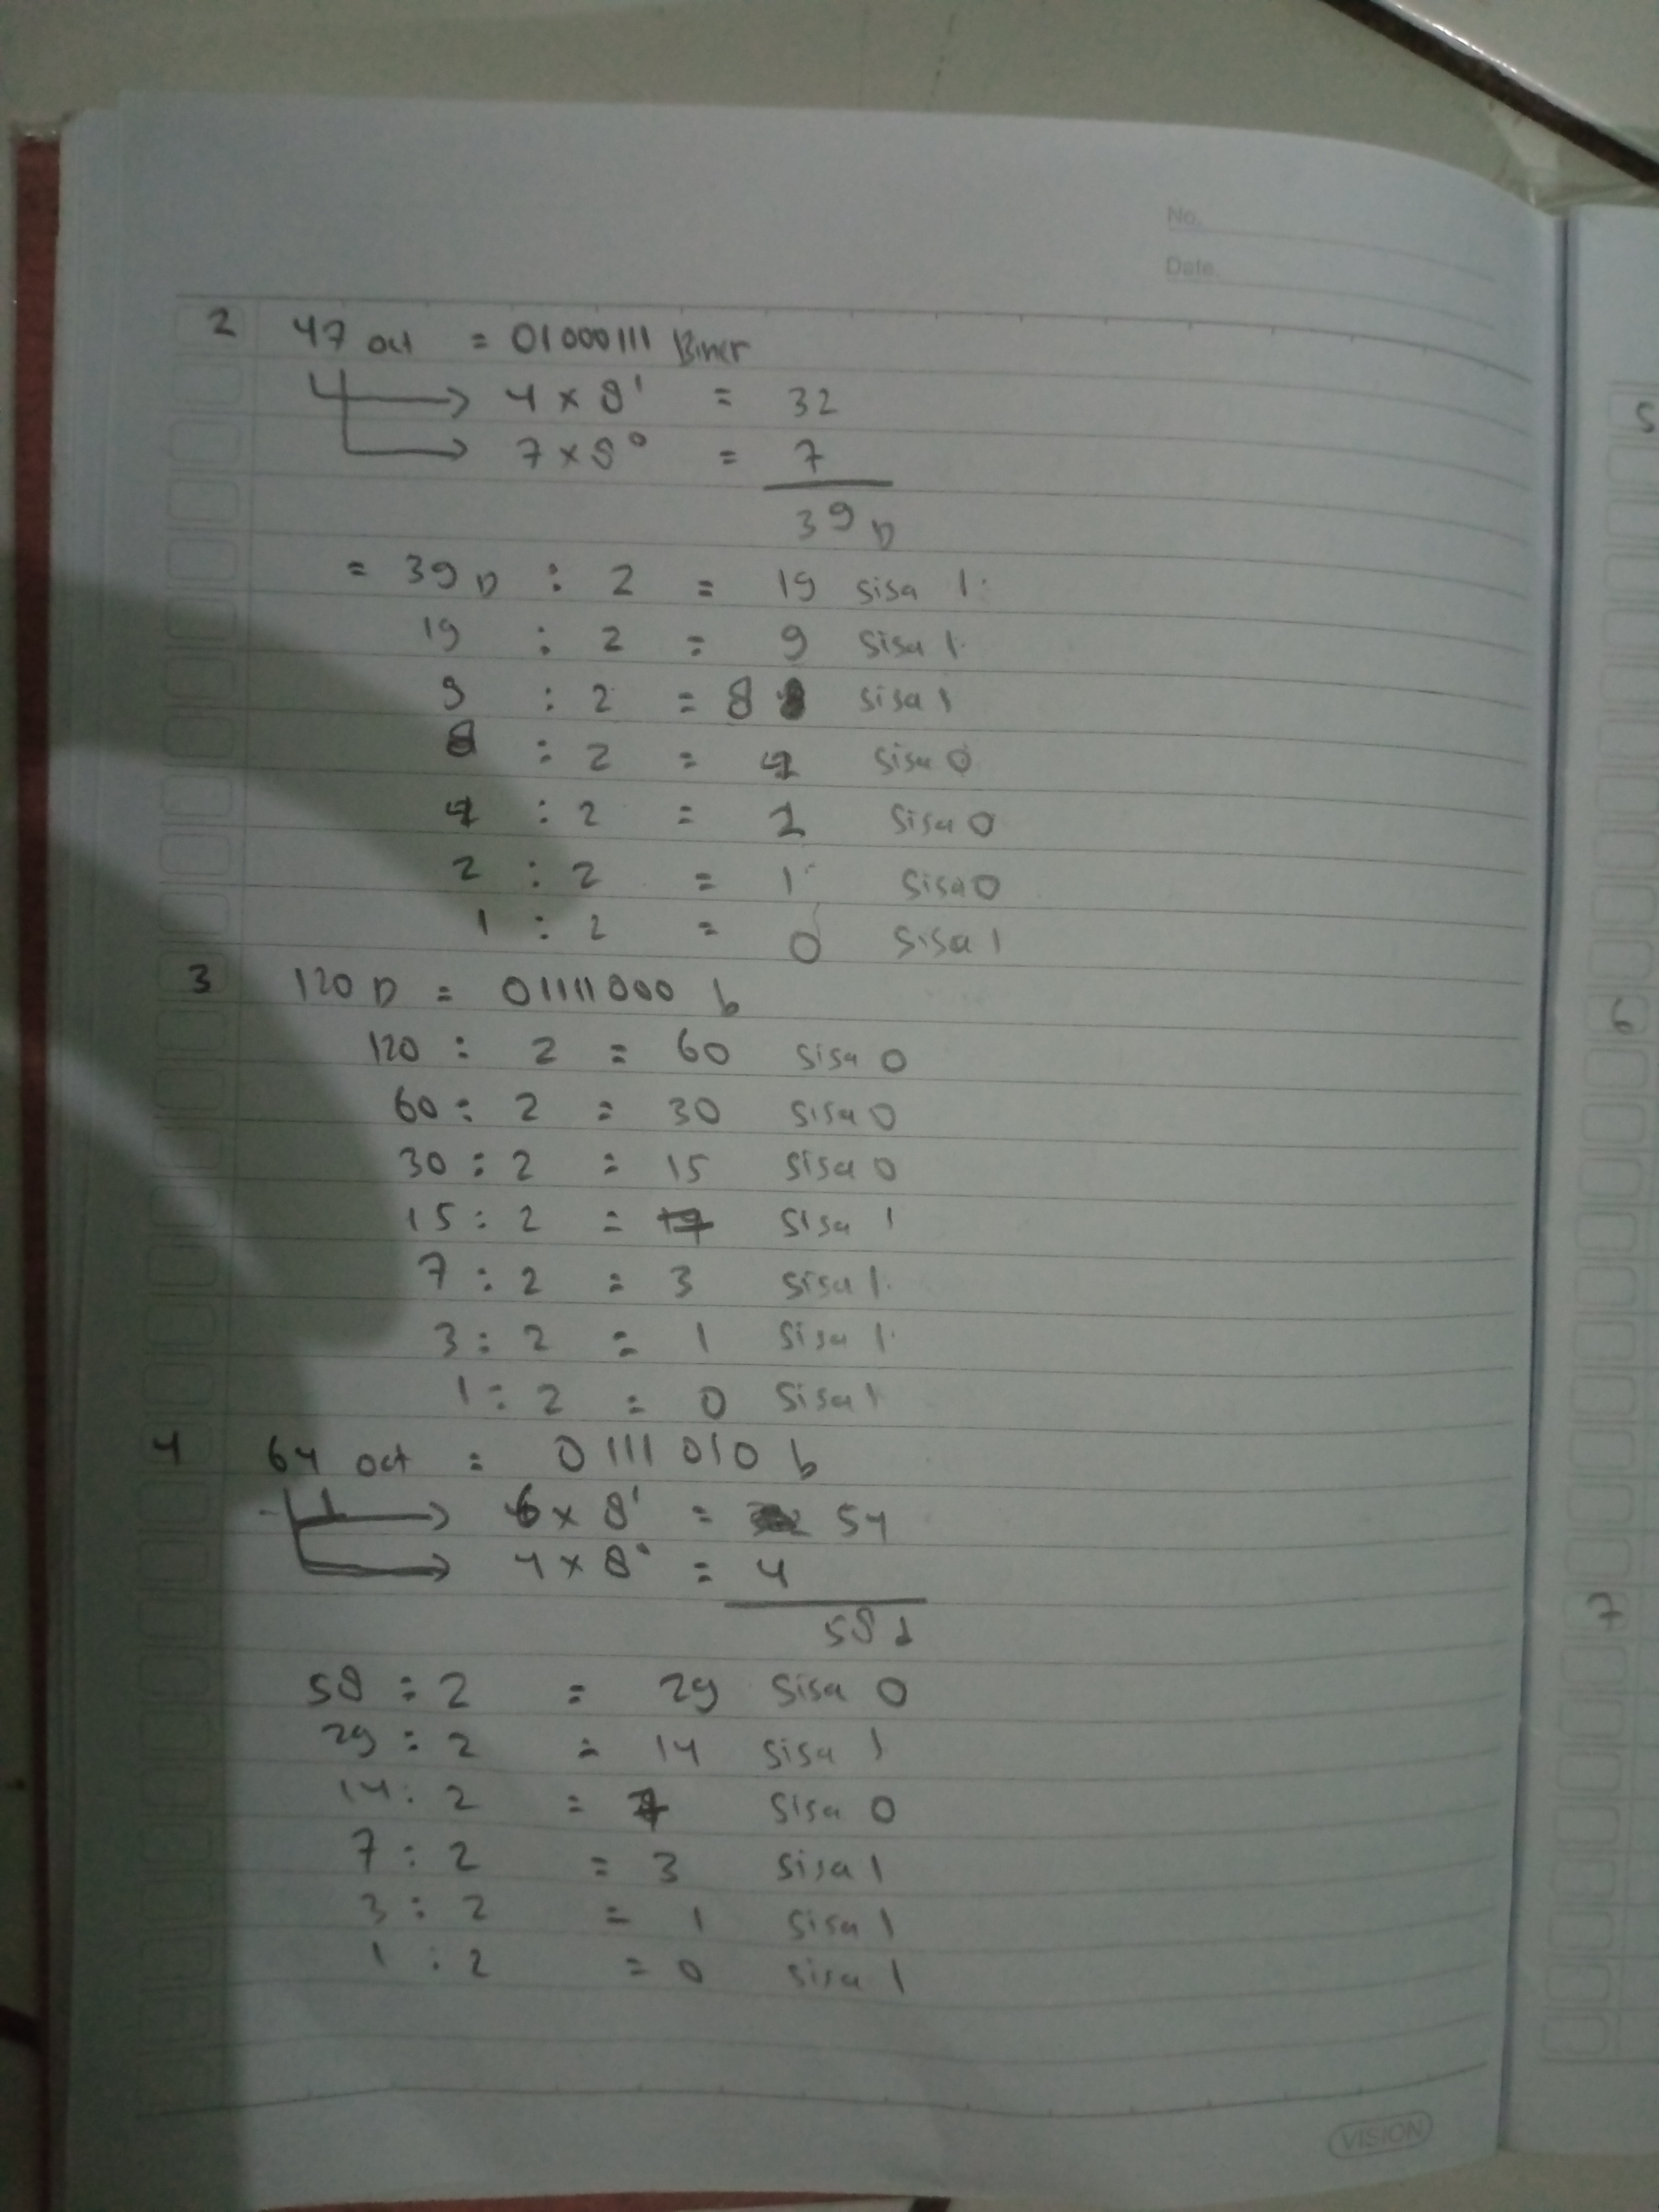 No.
Date.
2 47 oct = 01000111 Biner
4 x 8¹ = 32
7 x 8⁰ = 7
39 D
= 39 D : 2 = 19 sisa 1
19 : 2 = 9 sisa 1
9 : 2 = 8 sisa 1
8 : 2 = 4 sisa 0
4 : 2 = 2 sisa 0
2 : 2 = 1 sisa 0
1 : 2 = 0 sisa 1
3 120 D = 01111000 b
120 : 2 = 60 sisa 0
60 : 2 = 30 sisa 0
30 : 2 = 15 sisa 0
15 : 2 = 7 sisa 1
7 : 2 = 3 sisa 1
3 : 2 = 1 sisa 1
1 : 2 = 0 sisa 1
4 64 oct = 0111010 b
6 x 8¹ = 54
4 x 8⁰ = 4
58 d
58 : 2 = 29 sisa 0
29 : 2 = 14 sisa 1
14 : 2 = 7 sisa 0
7 : 2 = 3 sisa 1
3 : 2 = 1 sisa 1
1 : 2 = 0 sisa 1
VISION
5
6
7